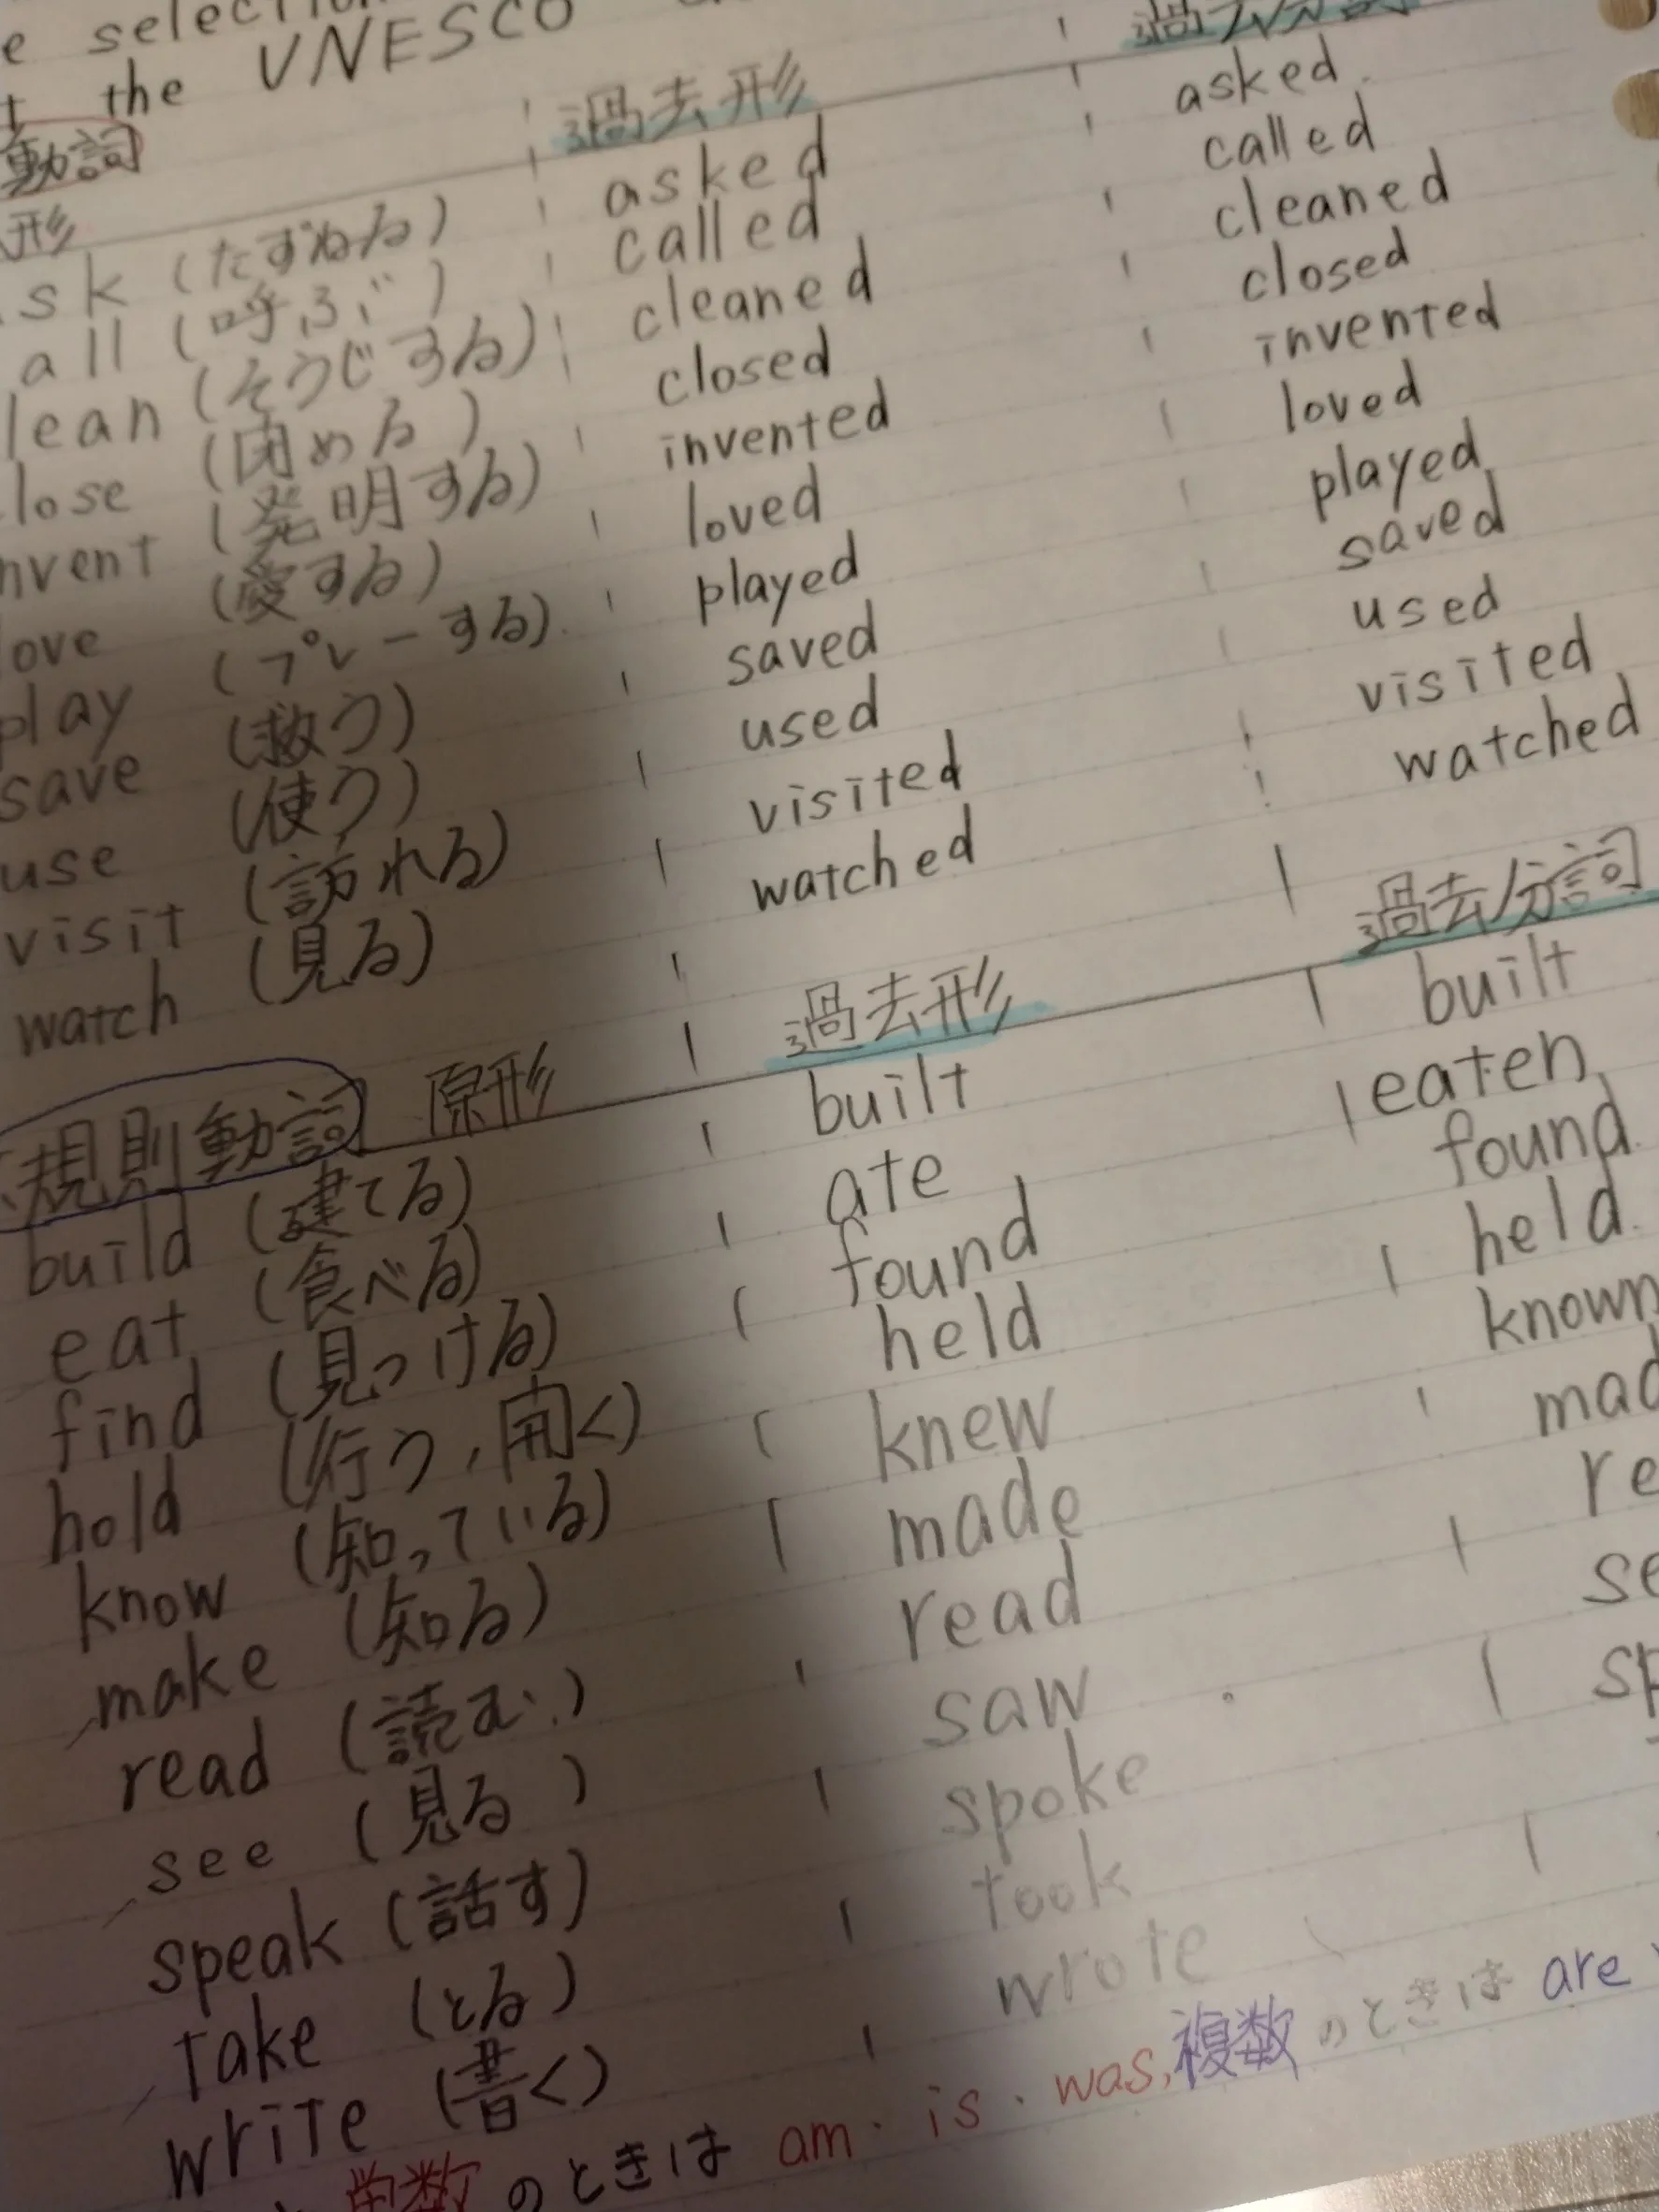 e selection
the UNESCO
動詞
形 過去形 過去分詞
sk (たずねる) asked asked
all (呼ぶ) called called
lean (そうじする) cleaned cleaned
lose (閉める) closed closed
nvent (発明する) invented invented
ove (愛する) loved loved
play (プレーする) played played
save (救う) saved saved
use (使う) used used
visit (訪れる) visited visited
watch (見る) watched watched
規則動詞 原形 過去形 過去分詞
build (建てる) built built
eat (食べる) ate eaten
find (見つける) found found
hold (行う,開く) held held
know (知っている) knew known
make (知る) made mad
read (読む) read re
see (見る) saw se
speak (話す) spoke sp
take (とる) took
write (書く) wrote
単数のときは am・is・was,複数のときは are